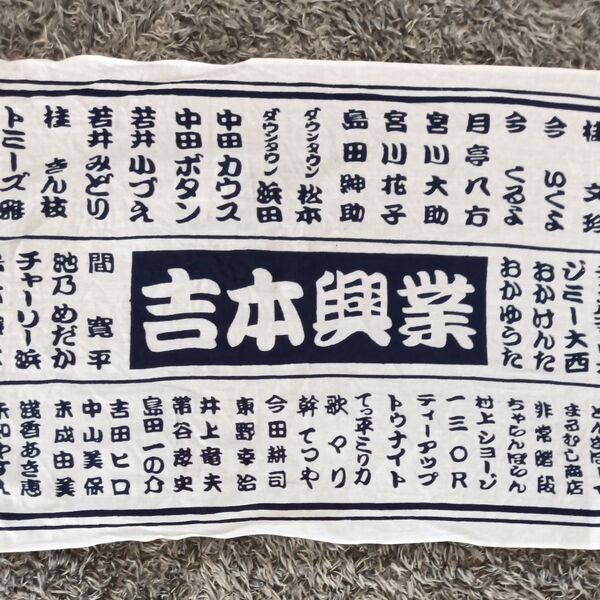 桂 文珍
今 いくよ
今 くるよ
月亭八方
宮川大助
宮川花子
島田紳助
ダウンタウン 松本
ダウンタウン 浜田
中田カウス
中田ボタン
若井小づえ
若井みどり
桂 きん枝
トミーズ雅
ジミー大西
おかけんた
おかゆうた
吉本興業
間 寛平
池乃めだか
チャーリー浜
まるむし商店
非常階段
ちゃらんぽらん
村上ショージ
一三〇R
ティーアップ
トゥナイト
てっ平ミリカ
歌 マリ
幹 てつや
今田耕司
東野幸治
井上竜夫
帯谷孝史
島田一の介
吉田ヒロ
中山美保
末成由美
浅香あき恵